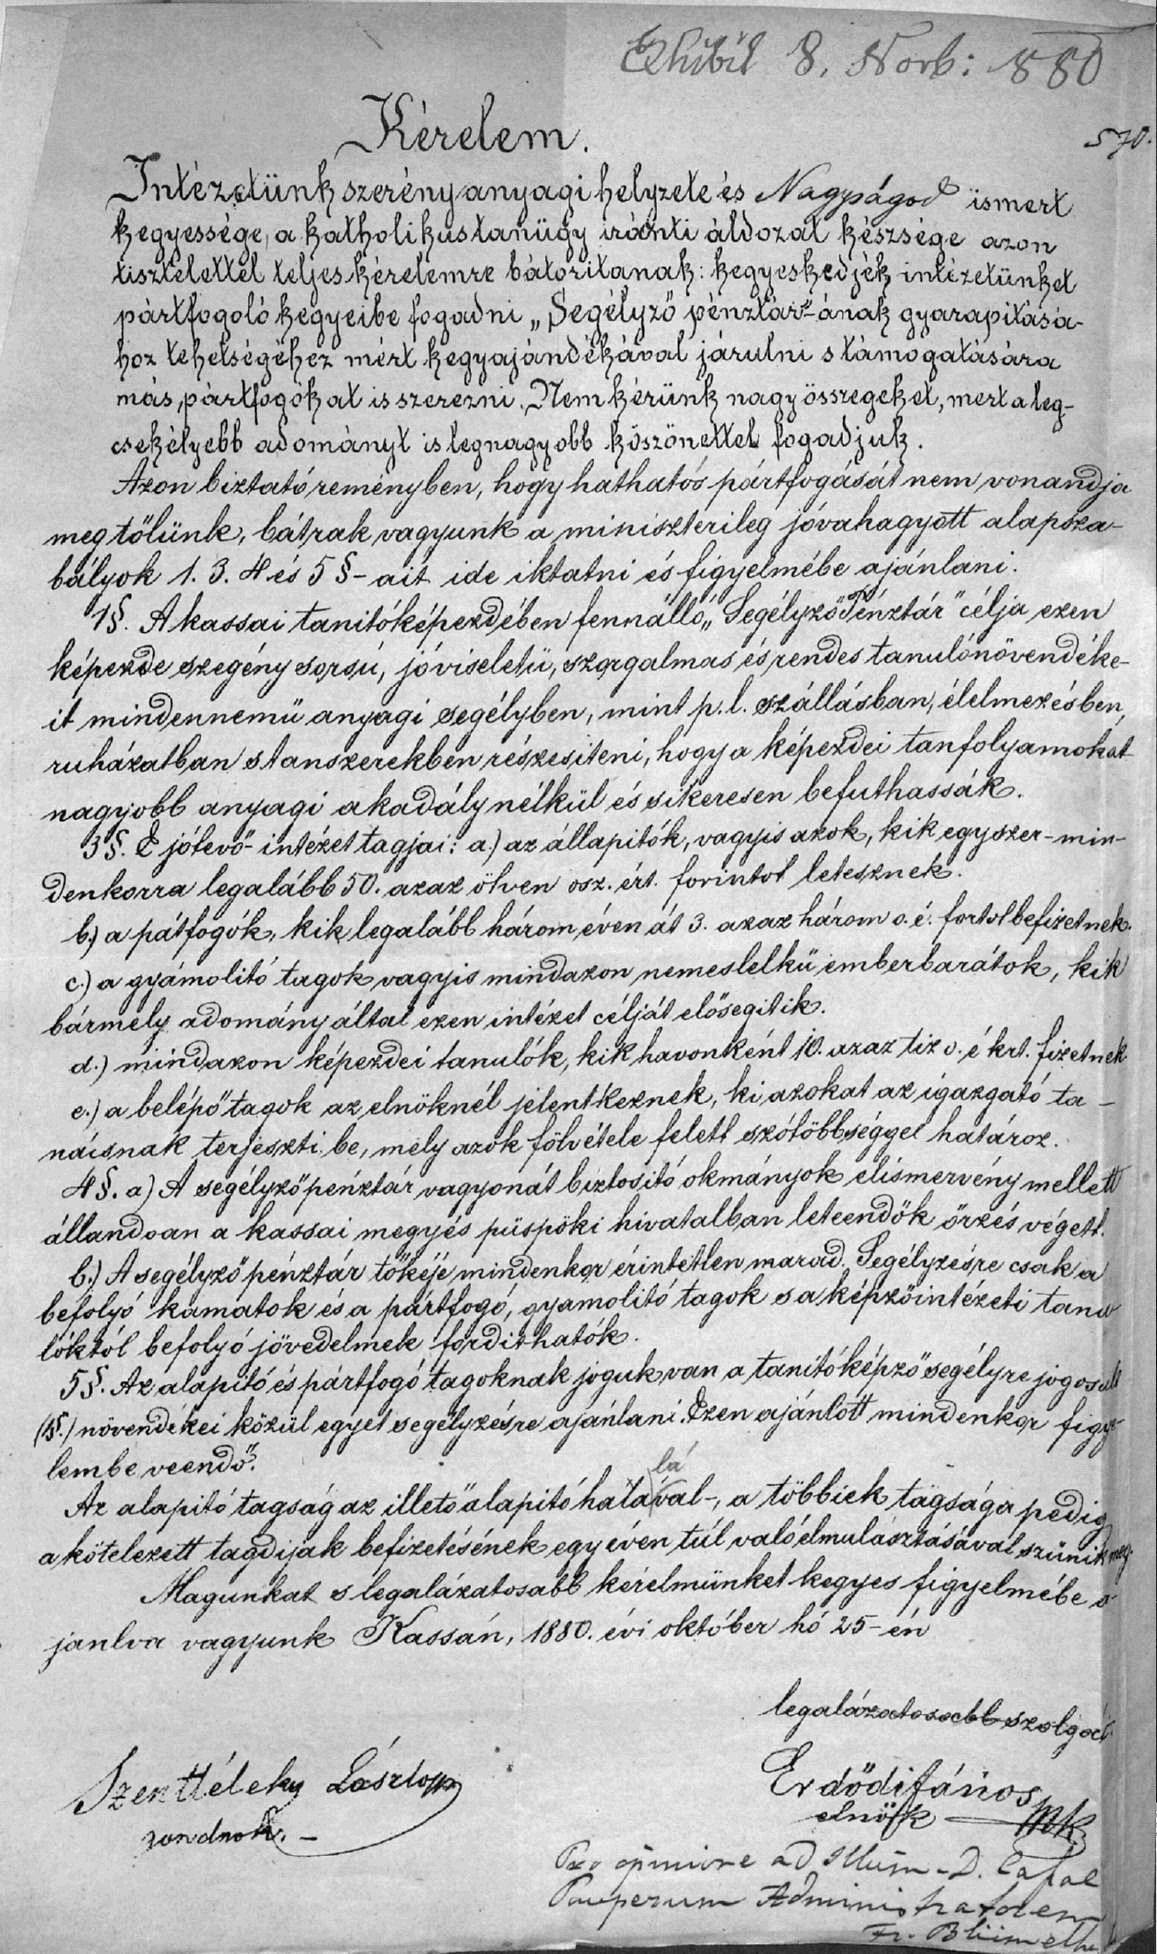 Exhibit 8. Novb: 880
570.
Kérelem.
Intézetünk szerény anyagi helyzete és Nagyságod ismert
kegyessége, a katholikus tanügy iránti áldozat készsége azon
tisztelettel teljes kérelemre bátoritanak: kegyeskedjék intézetünket
pártfogoló kegyeibe fogadni „Segélyző pénztár"-ának gyarapitásá-
hoz tehetségéhez mért kegyajándékával járulni s támogatására
más pártfogókat is szerezni. Nem kérünk nagy összegeket, mert a leg-
csekélyebb adományt is legnagyobb köszönettel fogadjuk.
Azon biztató reményben, hogy hathatós pártfogását nem vonandja
meg tőlünk, bátrak vagyunk a miniszterileg jóvahagyott alapsza-
bályok 1. 3. 4 és 5 §-ait ide iktatni és figyelmébe ajánlani.
1§. A kassai tanitóképezdében fennálló „Segélyző Pénztár" célja ezen
képezde szegény sorsú, jóviseletü, szorgalmas és rendes tanulónövendéke-
it mindennemü anyagi segélyben, mint p. l. szállásban, élelmezésben,
ruházatban s tanszerekben részesiteni, hogy a képezdei tanfolyamokat
nagyobb anyagi akadály nélkül és sikeresen befuthassák.
3§. E jótevő-intézet tagjai: a.) az állapitók, vagyis azok, kik egyszer-min-
denkorra legalább 50. azaz ötven osz. ért. forintot letesznek.
b.) a pátfogók, kik legalább három éven át 3. azaz három o. é. fortot befizetnek.
c.) a gyámolitó tagok vagyis mindazon nemeslelkü emberbarátok, kik
bármely adomány által ezen intézet célját elősegitik.
d.) mindazon képezdei tanulók, kik havonként 10. azaz tiz o. é krt. fizetnek
e.) a belépő tagok az elnöknél jelentkeznek, ki azokat az igazgató ta-
násnak terjeszti be, mely azok fölvétele felett szótöbbséggel határoz.
4§. a) A segélyző pénztár vagyonát biztositó okmányok elismervény mellett
állandoan a kassai megyés püspöki hivatalban leteendők őrzés végett.
b.) A segélyző pénztár tőkéje mindenkor érintetlen marad. Segélyzésre csak a
befolyó kamatok és a pártfogó, gyamolitó tagok s a képzőintézeti tanu
lóktól befolyó jövedelmek fordithatók.
5§. Az alapitó és pártfogó tagoknak joguk van a tanitóképző segélyre jogosult
(1§.) növendékei közül egyet segélyzésre ajánlani. Ezen ajánlott mindenkor figye
lembe veendő.
Az alapitó tagság az illető alapitó halálával-, a többiek tagsága pedig
a kötelezett tagdijak befizetésének egy éven túl való elmulásztásával szünik meg.
Magunkat s legalázatosabb kérelmünket kegyes figyelmébe a
jánlva vagyunk Kassán, 1880. évi október hó 25-én
legalázatosabb szolgái
Szenttéleky László
gondnok.
Erdődi János
elnök mk
Pro opinione ad Illum. D.
Pauperum Administratorem
Fr.